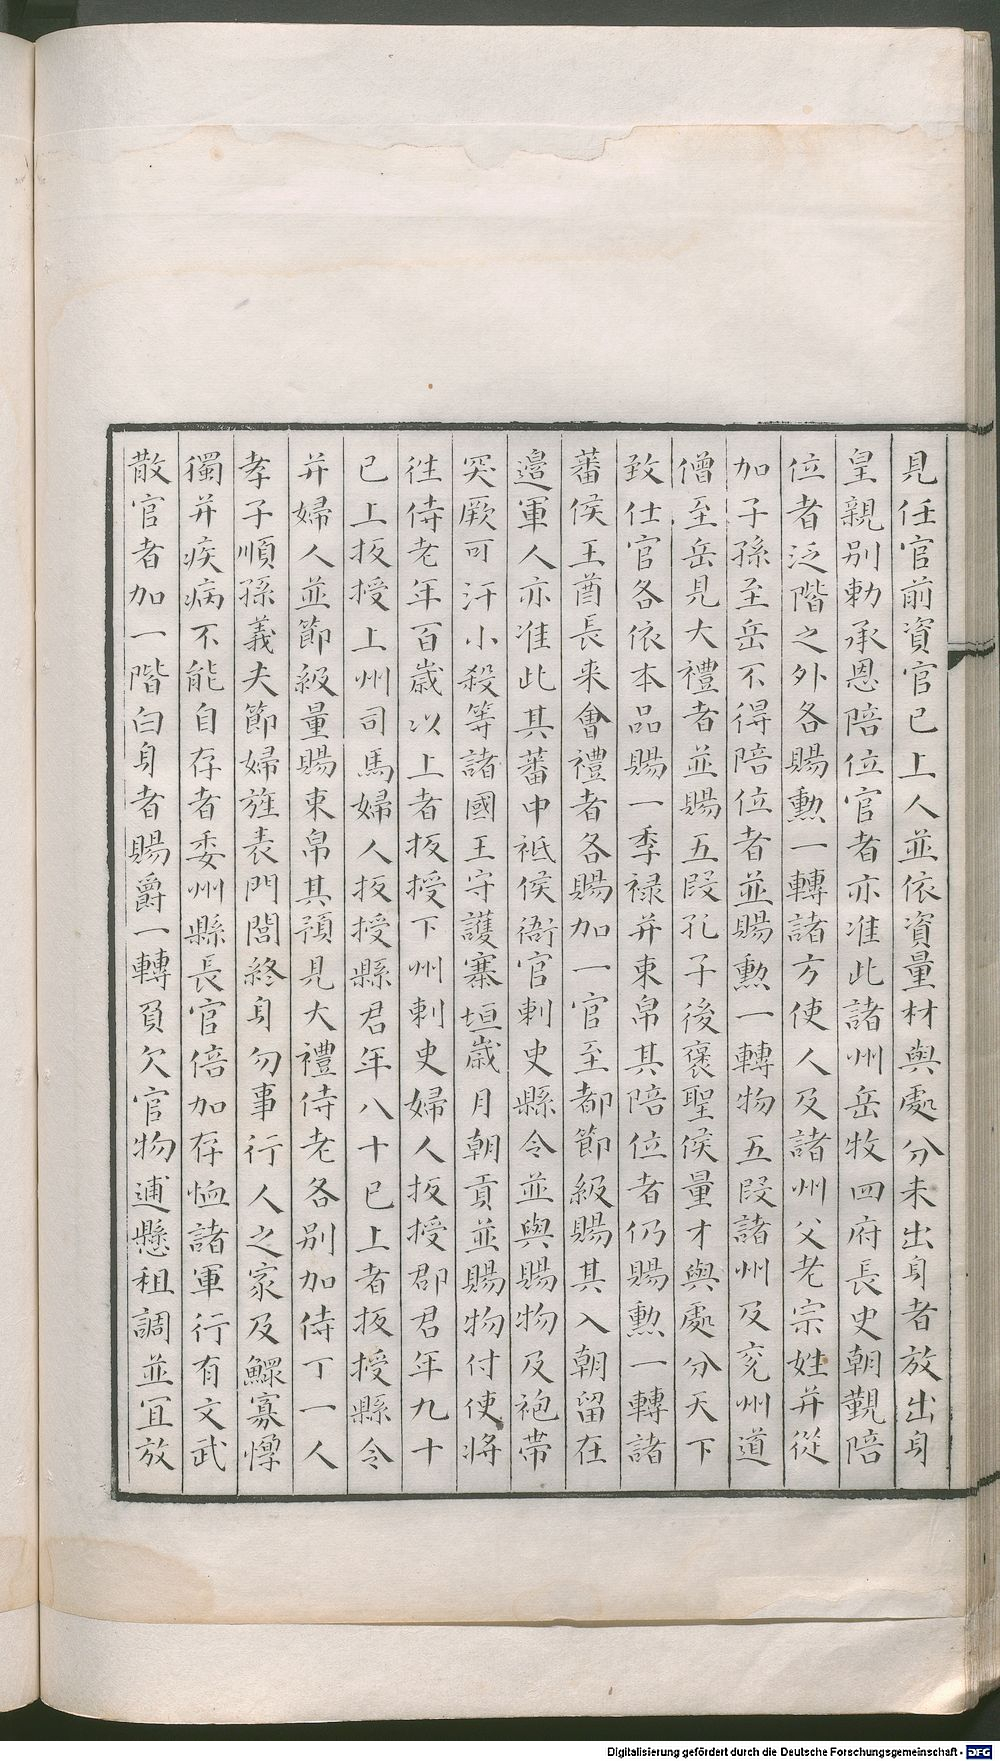 見任官前資官已上人並依資量材與處分未出身者放出身
皇親別勑承恩陪位官者亦准此諸州岳牧四府長史朝覲陪
位者泛階之外各賜勲一轉諸方使人及諸州父老宗姓并從
加子孫至岳不得陪位者並賜勲一轉物五叚諸州及兖州道
僧至岳見大禮者並賜五叚孔子後褒聖侯量才與處分天下
致仕官各依本品賜一季禄并束帛其陪位者仍賜勲一轉諸
蕃侯王酋長来㑹禮者各賜加一官至都節級賜其入朝留在
邉軍人亦准此其蕃中袛侯衙官刺史縣令並與賜物及袍帶
突厥可汗小殺等諸國王守護塞垣歲月朝貢並賜物付使将
徃侍老年百歲以上者扳授下州刺史婦人扳授郡君年九十
已上扳授上州司馬婦人扳授縣君年八十已上者扳授縣令
并婦人並節級量賜束帛其預見大禮侍老各別加侍丁一人
孝子順孫義夫節婦旌表門閭終身勿事行人之家及鰥寡惸
獨并疾病不能自存者委州縣長官倍加存恤諸軍行有文武
散官者加一階白身者賜爵一轉負欠官物逋懸租調並宜放
Digitalisierung gefördert durch die Deutsche Forschungsgemeinschaft - DFG